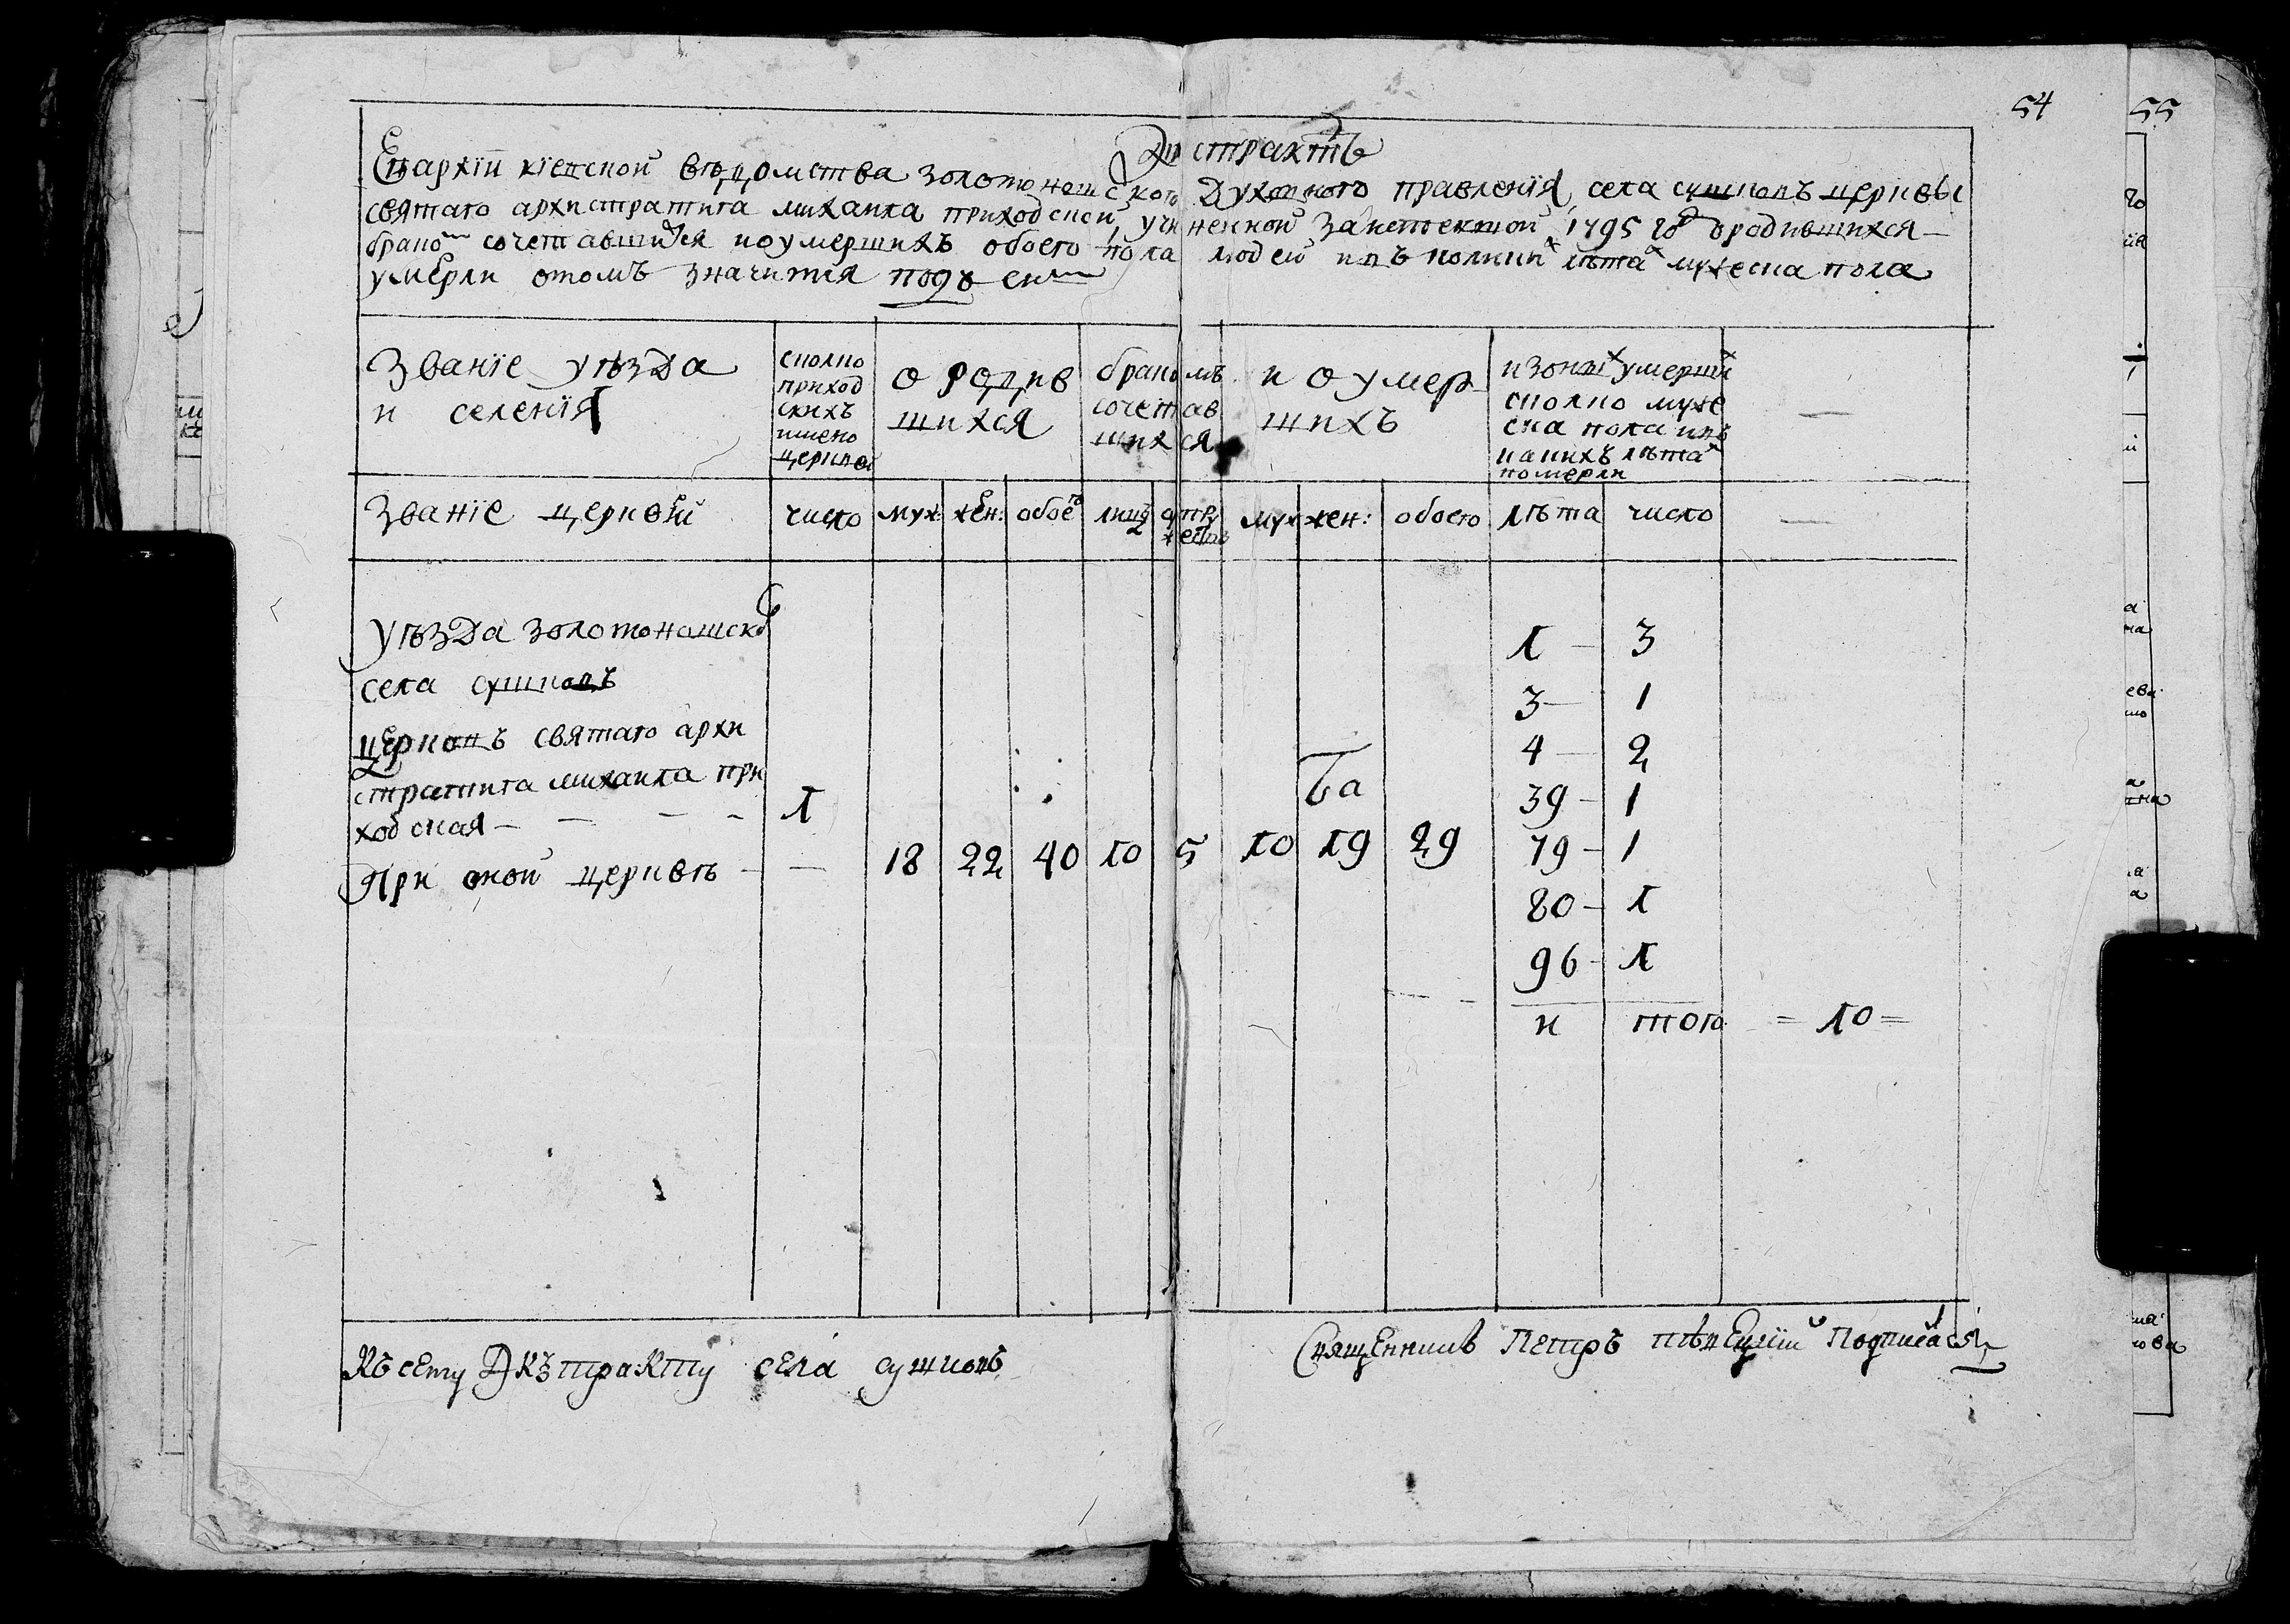 54
55
Экстрактъ
Епархїи кїевской вѣдомства золотоношского Духовного правленїя, села сушковъ церквы
святаго архистратига михаила приходской, учиненной 1795 го ородившихся
брако сочетавшихся иоумершихъ обоего пола людей икъ колики лѣта мужеска пола
умерли отомъ значится подъ сим
Званїе уѣзда
и селенїя
сколко
приход
скихъ
имено
церквей
о родив
шихся
бракомъ
сочетав
шихся
и о умер
шихъ
изоных умерших
сколко муже
ска пола
какихъ лѣта
померли
Званїе церквей
число
муж:
жен:
обоего
лицъ
супружествъ
муж
жен:
обоего
лѣта
число
Уѣзда золотоношского
села сушковъ
Церковъ святаго архи
стратига михаила при
ходская — — — -
1
При оной церквѣ — —
18 22 40 10 5 10 19 29
1 — 3
3 — 1
4 — 2
39 — 1
79 — 1
80 — 1
96 — 1
и того = 10 =
Къ сему Экъстракту села сушковъ
Священникъ Петръ Подписался